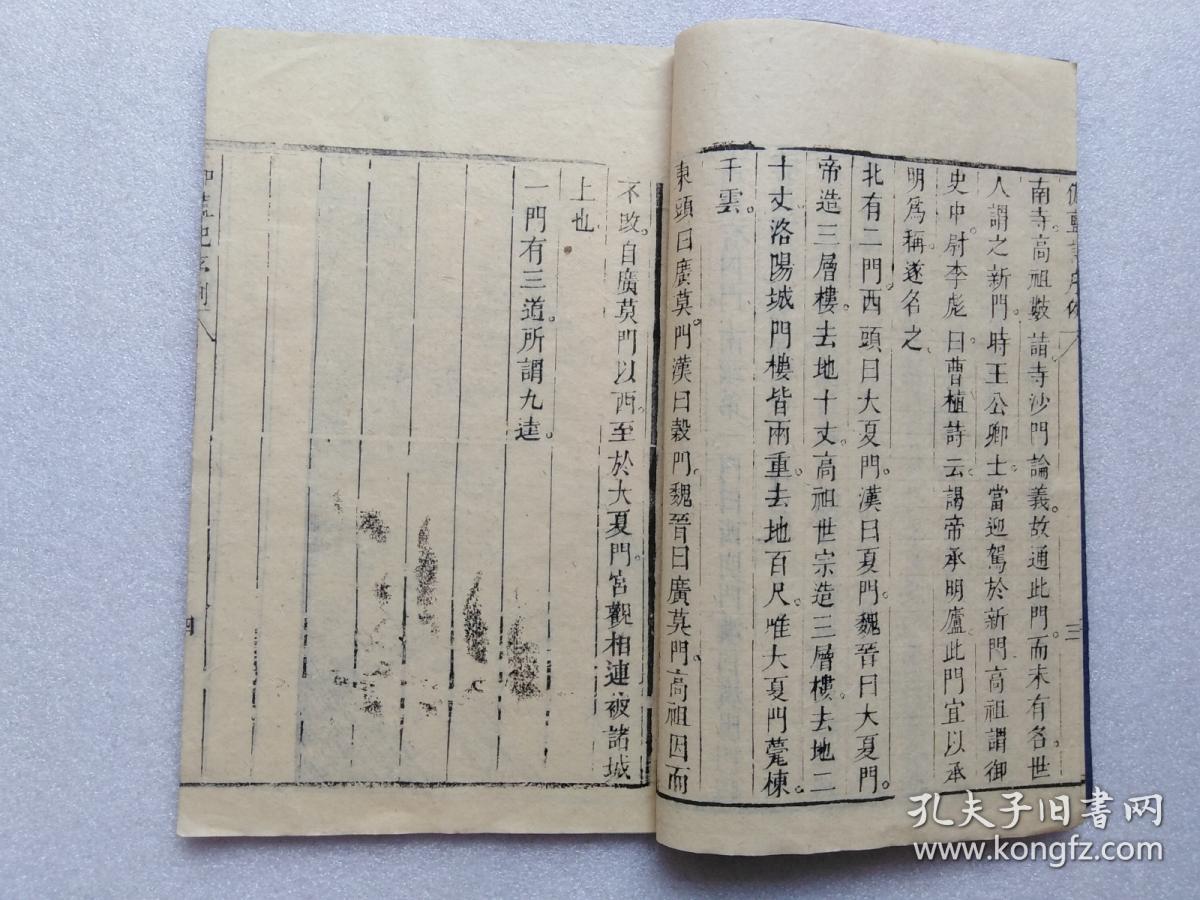 南寺高祖數詣寺沙門論義。故通此門。而未有名。世
人謂之新門。時王公卿士當迎駕於新門高祖謂御
史中尉李彪曰曹植詩云謁帝承明廬此門宜以承
明爲稱遂名之
北有二門西頭曰大夏門漢曰夏門魏晉曰大夏門。
帝造三層樓。去地十丈。高祖世宗造三層樓。去地二
十丈。洛陽城門樓皆兩重。去地百尺。唯大夏門甍棟。
干雲。
東頭曰廣莫門漢曰穀門。魏晉曰廣莫門高祖因而
三
不改。自廣莫門以西。至於大夏門宮觀相連被諸城
上也。
一門有三道。所謂九逵。
四
孔夫子旧书网
www.kongfz.com